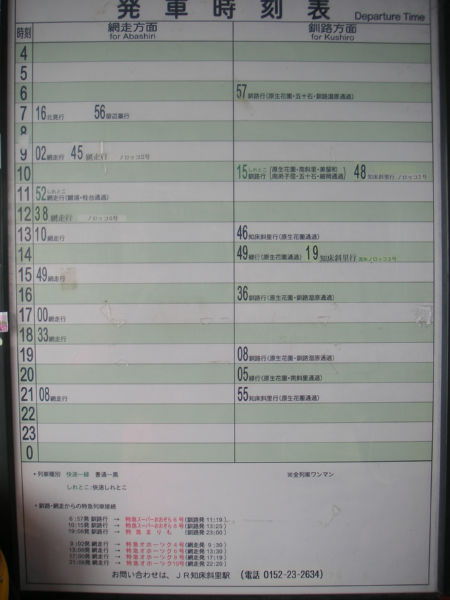 発車時刻表 Departure Time
時刻 網走方面 for Abashiri 釧路方面 for Kushiro
4
5
6 57釧路行(原生花園・五十石・釧路湿原通過)
7 16北見行 56留辺蘂行
8
9 02網走行 45網走行 ノロッコ2号
10 15しれとこ 釧路行 [原生花園・南斜里・美留和 南弟子屈・五十石・細岡通過] 48知床斜里行ノロッコ1号
11 52しれとこ 網走行(鱒浦・桂台通過)
12 38網走行 ノロッコ4号
13 10網走行 46知床斜里行(原生花園通過)
14 49緑行(原生花園通過) 19知床斜里行 ノロッコ3号
15 49網走行
16 36釧路行(原生花園・釧路湿原通過)
17 00網走行
18 33網走行
19 08釧路行(原生花園・釧路湿原通過)
20 05緑行(原生花園・南斜里通過)
21 08網走行 55知床斜里行(原生花園通過)
22
23
0
・列車種別 快速ー緑 普通ー黒 ※全列車ワンマン
しれとこ:快速しれとこ
・釧路・網走からの特急列車接続
6:57発 釧路行 → 特急スーパーおおぞら6号(釧路発 11:19)
10:15発 釧路行 → 特急スーパーおおぞら8号(釧路発 13:25)
19:08発 釧路行 → 特急まりも (釧路発 23:00)
9:02発 網走行 → 特急オホーツク4号(網走発 9:30)
13:08発 網走行 → 特急オホーツク6号(網走発 13:30)
17:00発 網走行 → 特急オホーツク8号(網走発 17:18)
21:08発 網走行 → 特急オホーツク10号(網走発 22:20)
お問い合わせは、JR知床斜里駅 (電話 0152-23-2634)